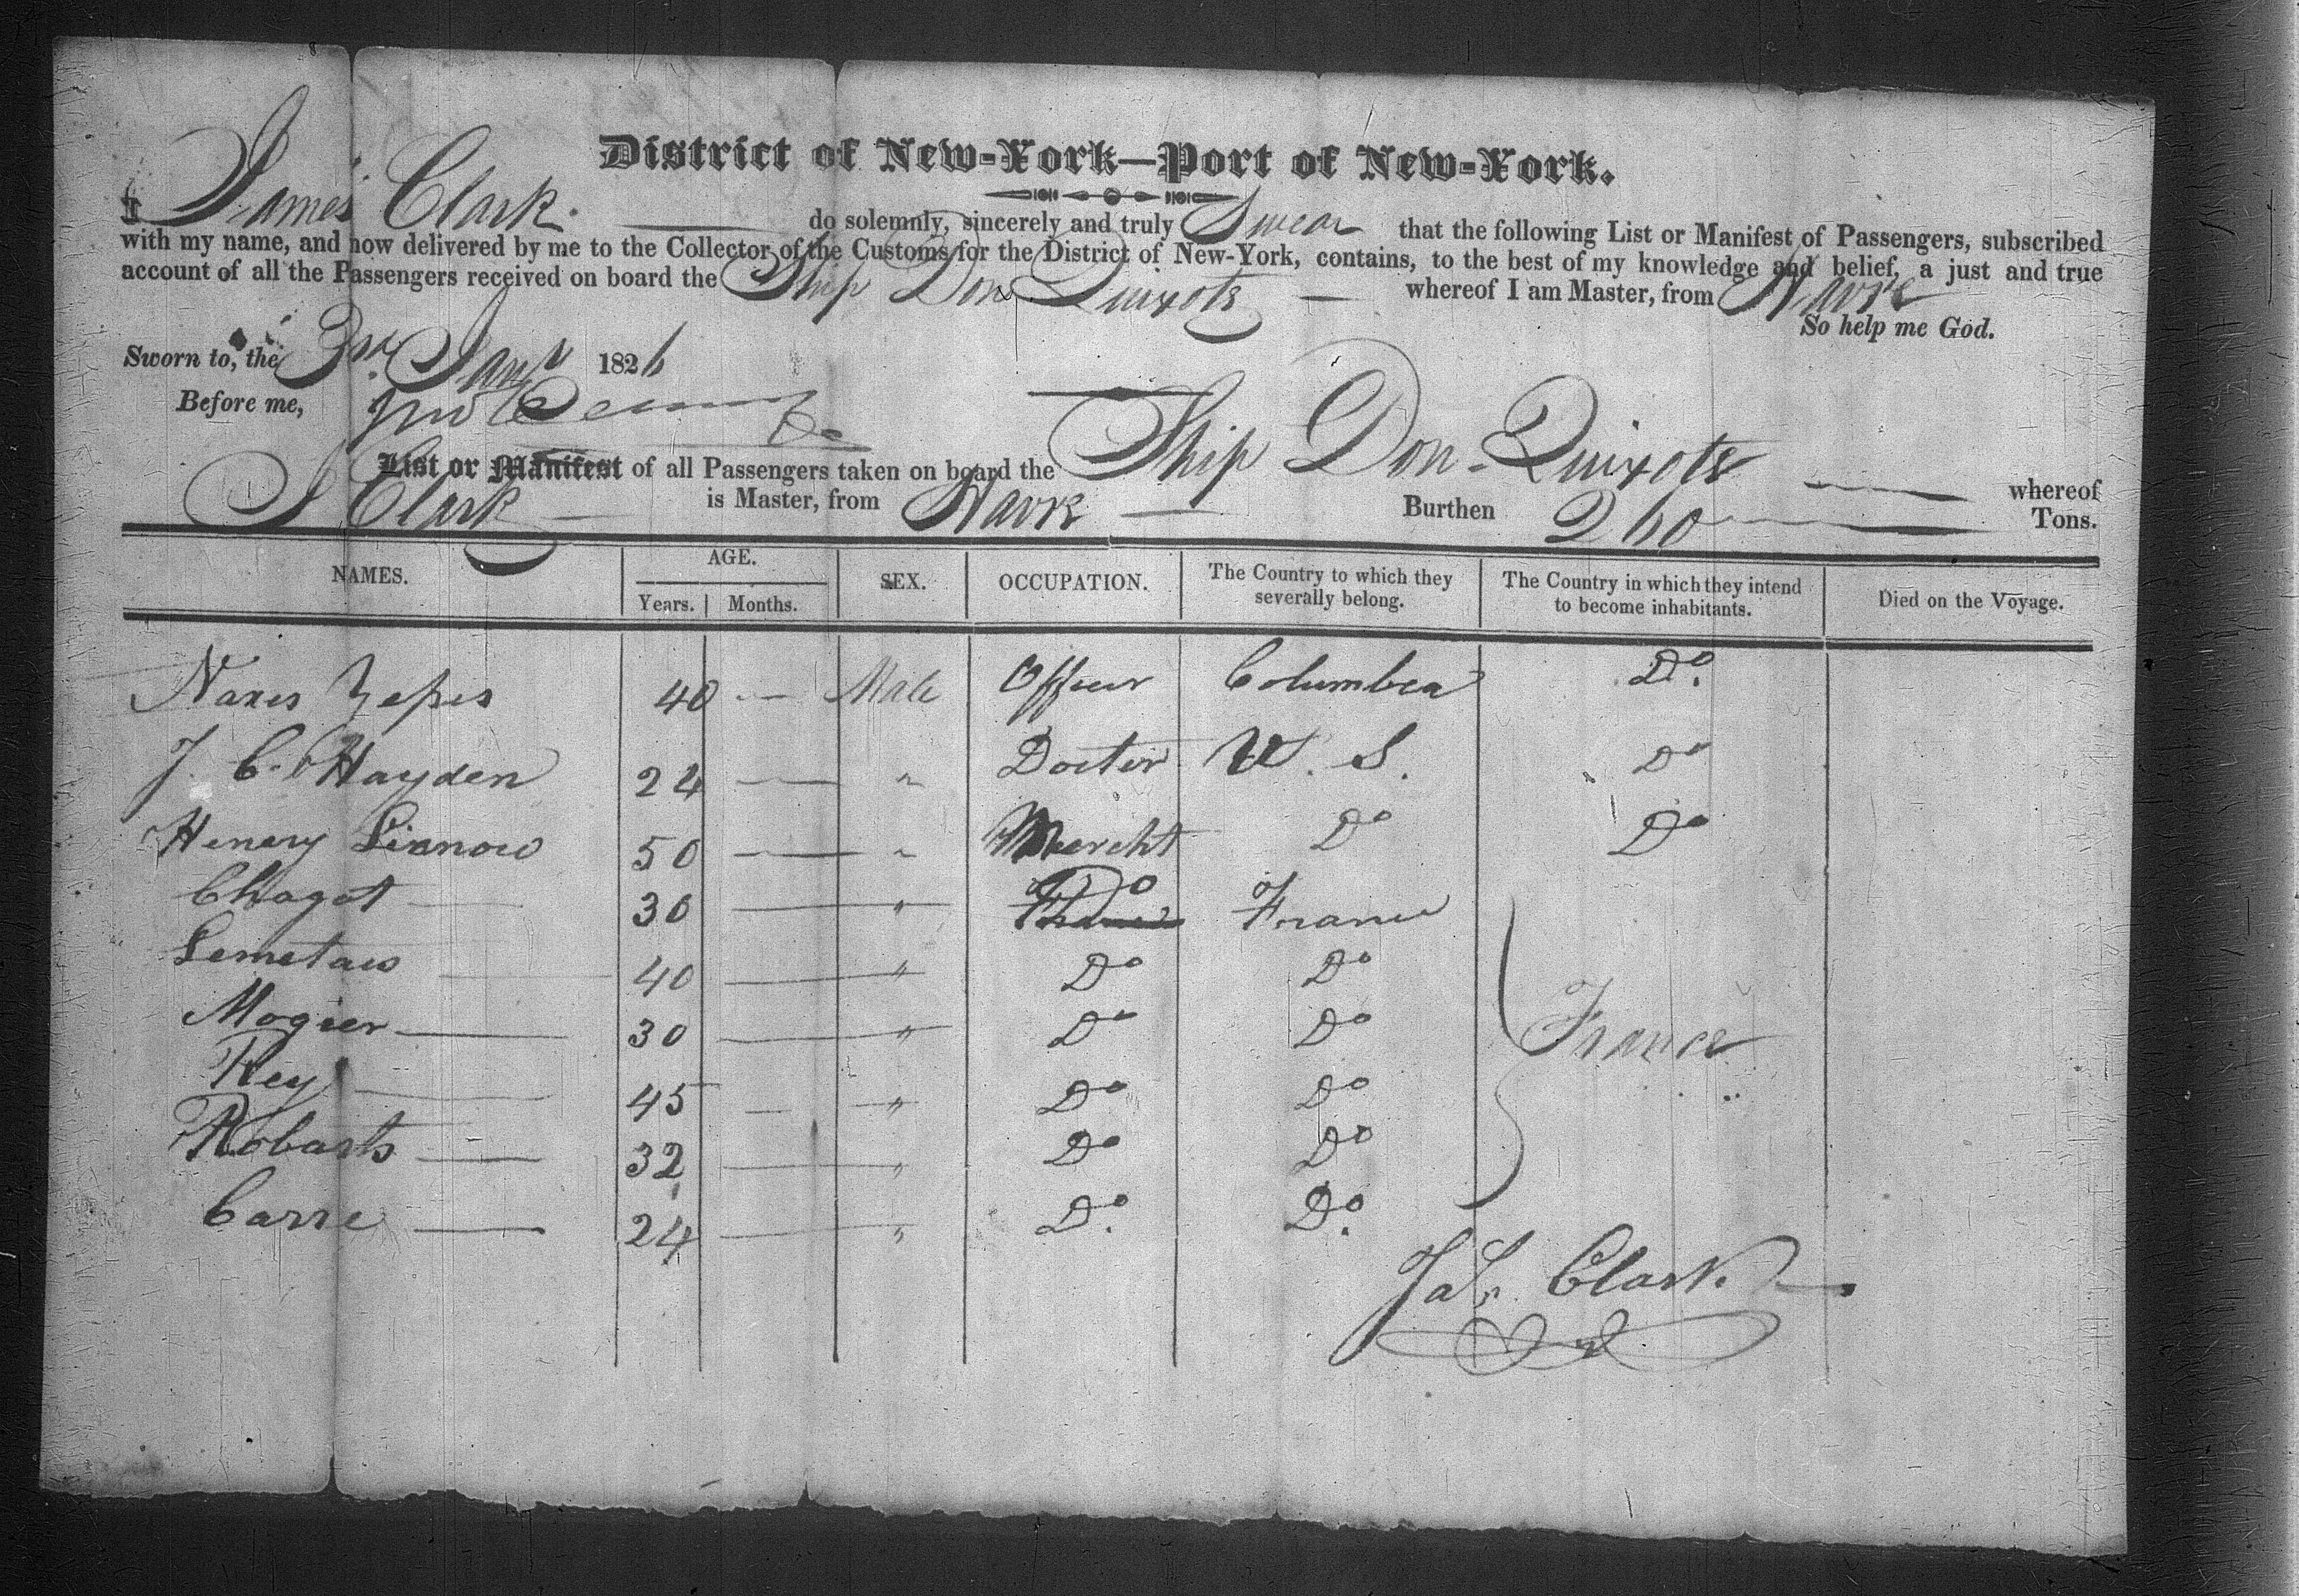 District of New-York—Port of New-York.
I James Clark do solemnly, sincerely and truly Swear that the following List or Manifest of Passengers, subscribed
with my name, and now delivered by me to the Collector of the Customs for the District of New-York, contains, to the best of my knowledge and belief, a just and true
account of all the Passengers received on board the Ship Don Quixote whereof I am Master, from Havre
So help me God.
Sworn to, the 3rd Jany 1826
Before me,
List or Manifest of all Passengers taken on board the Ship Don-Quixote whereof
J Clark is Master, from Havre Burthen 260 Tons.
NAMES. AGE. Years. Months. SEX. OCCUPATION. The Country to which they severally belong. The Country in which they intend to become inhabitants. Died on the Voyage.
Yepes 40 — Male Officer Columbea Do.
J. C. Hayden 24 — " Doctor U. S. Do
Henery 50 — " Mercht Do Do
Chagot 30 — " Do France
40 — " Do Do
Mogier 30 — " Do Do France
Rey 45 — " Do Do
Robarts 32 — " Do Do
Carre 24 — " Do. Do.
Jas. Clark